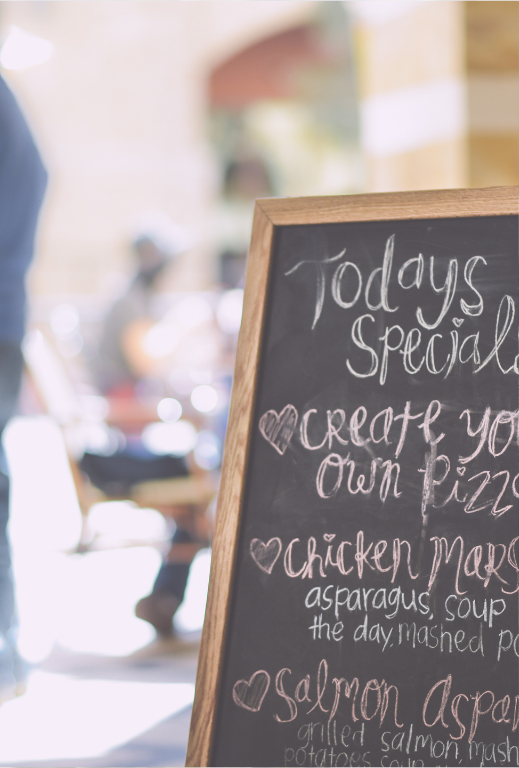 Todays
Special
create yo
own pizz
chicken mars
asparagus, soup
the day, mashed po
salmon aspar
grilled salmon, mush
potatoes soup